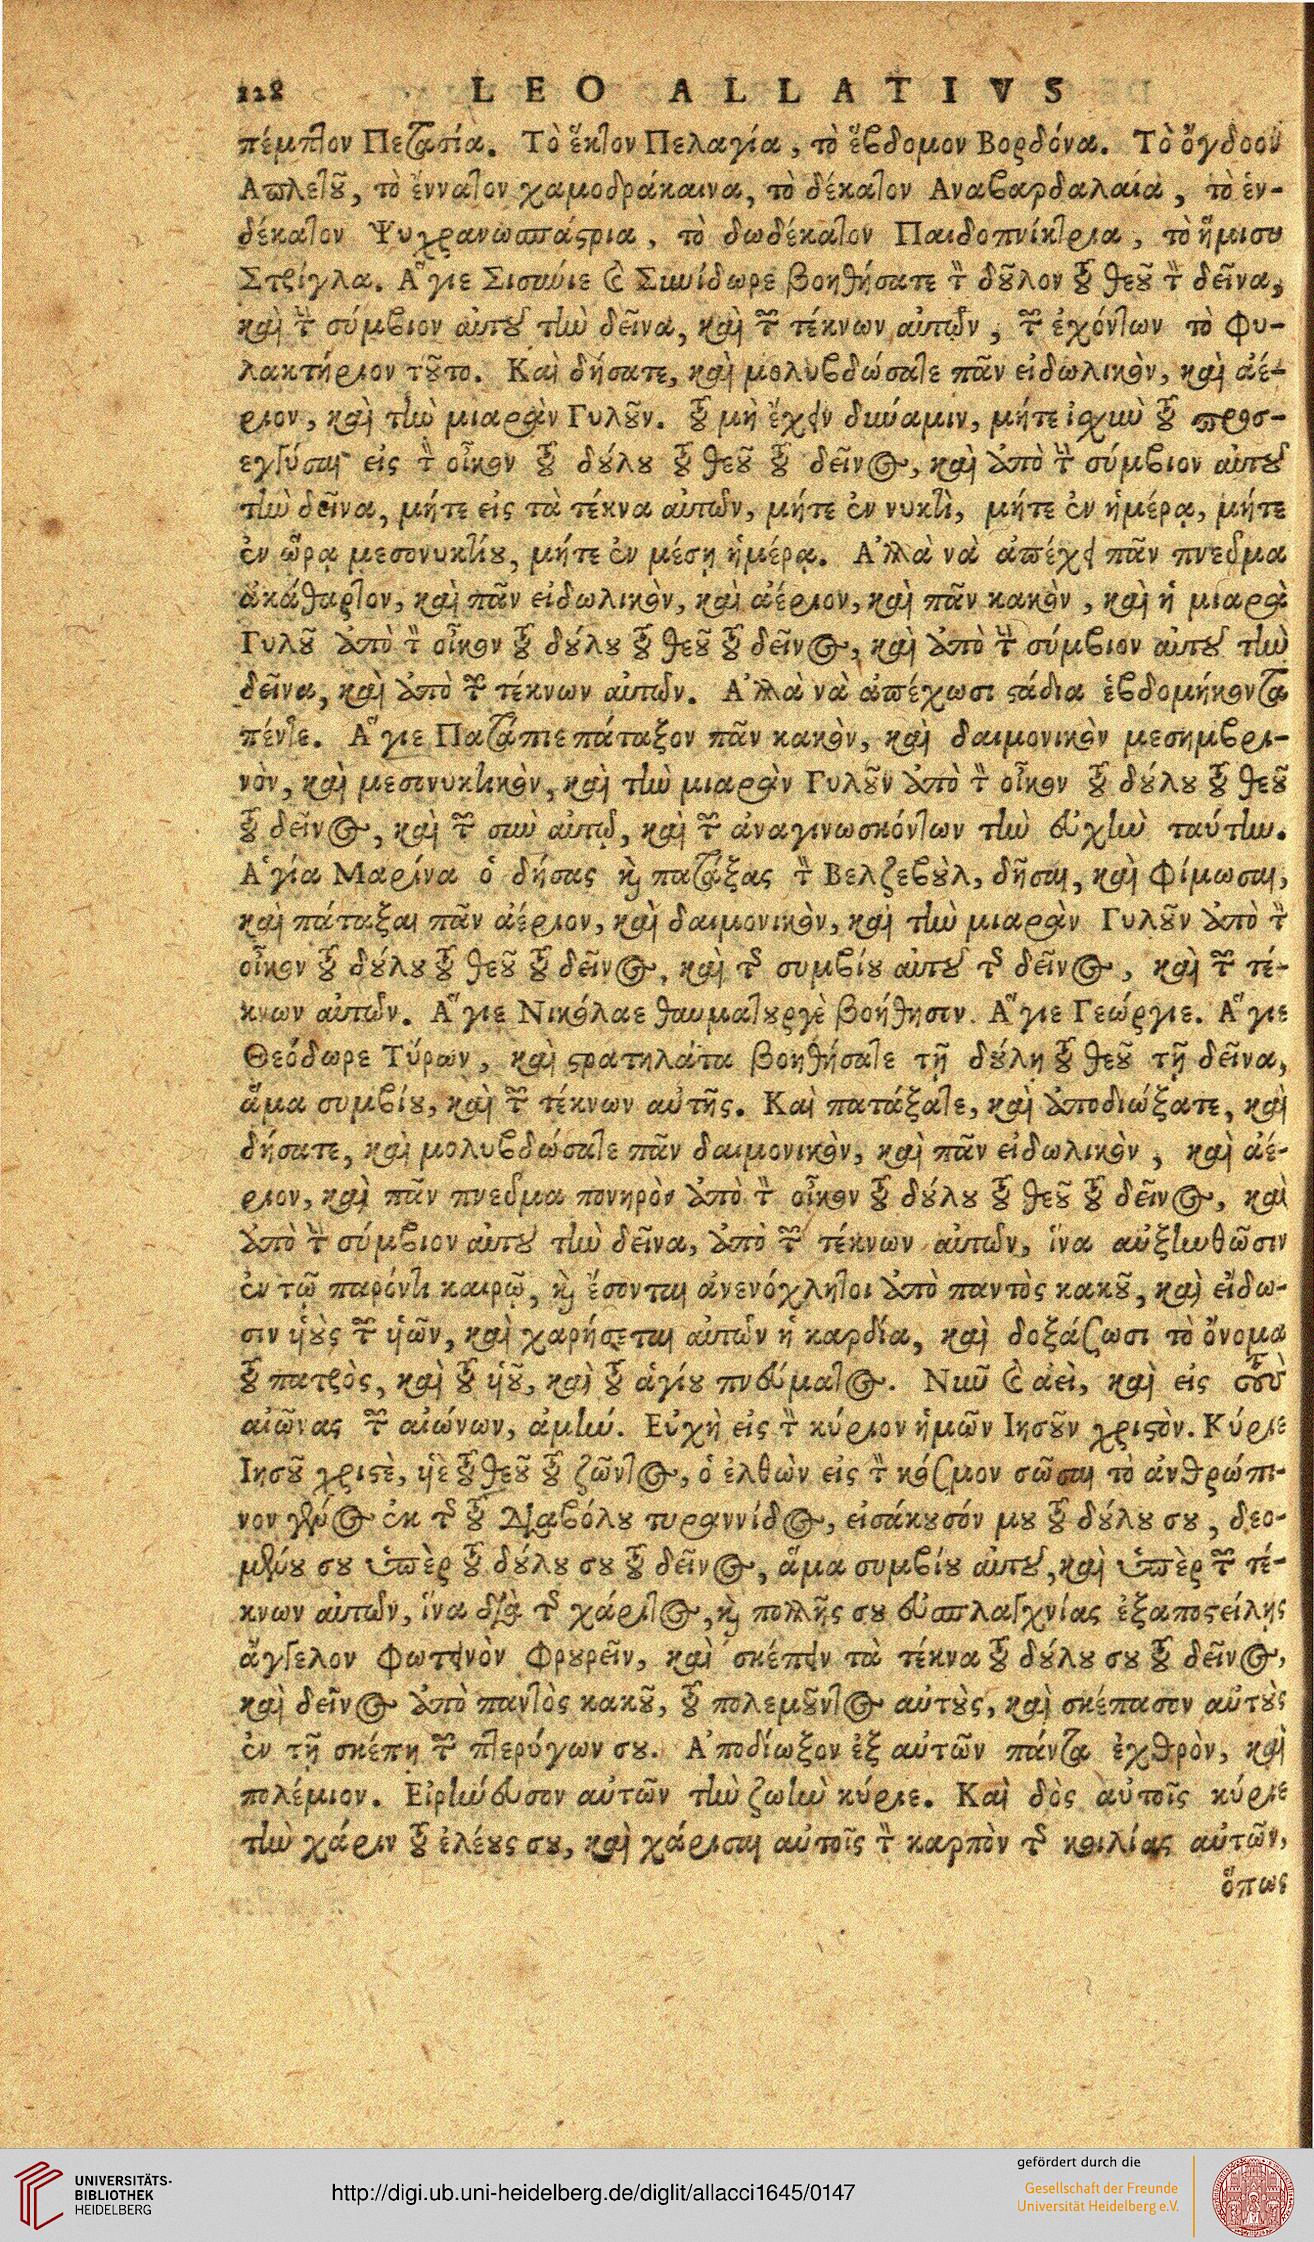 128 LEO ALLATIVS
πέμπτον Πετασία. Τὸ ἕκτον Πελαγία, τὸ ἕβδομον Βορδόνα. Τὸ ὄγδοον
Απλετοῦ, τὸ ἔννατον χαμοδράκαινα, τὸ δέκατον Αναβαρδαλαία, τὸ ἑν-
δέκατον Ψυχρανωσπάστρια, τὸ δωδέκατον Παιδοπνίκτρια, τὸ ἥμισυ
Στρίγλα. Ἅγιε Σισύνιε καὶ Συνίδωρε βοηθήσατε τὸν δοῦλον τοῦ θεοῦ τὸν δεῖνα,
καὶ τὴν σύμβιον αὐτοῦ τὴν δεῖνα, καὶ τῶν τέκνων αὐτῶν, τῶν ἐχόντων τὸ φυ-
λακτήριον τοῦτο. Καὶ δήσατε, καὶ μολυβδώσατε πᾶν εἰδωλικὸν, καὶ αέ-
ριον, καὶ τὴν μιαρὰν Γυλοῦν. τοῦ μὴ ἔχειν δύναμιν, μήτε ἰσχὺν τοῦ προσ-
εγγύσαι εἰς τὸν οἶκον τοῦ δούλου τοῦ θεοῦ τοῦ δεῖνος, καὶ ἀπὸ τὴν σύμβιον αὐτοῦ
τὴν δεῖνα, μήτε εἰς τὰ τέκνα αὐτῶν, μήτε ἐν νυκτὶ, μήτε ἐν ἡμέρᾳ, μήτε
ἐν ὥρᾳ μεσονυκτίου, μήτε ἐν μέσῃ ἡμέρᾳ. Ἀλλὰ νὰ ἀπέχει πᾶν πνεῦμα
ἀκάθαρτον, καὶ πᾶν εἰδωλικὸν, καὶ αέριον, καὶ πᾶν κακὸν, καὶ ἡ μιαρὰ
Γυλοῦ ἀπὸ τὸν οἶκον τοῦ δούλου τοῦ θεοῦ τοῦ δεῖνος, καὶ ἀπὸ τὴν σύμβιον αὐτοῦ τὴν
δεῖνα, καὶ ἀπὸ τῶν τέκνων αὐτῶν. Ἀλλὰ νὰ ἀπέχωσι στάδια ἑβδομήκοντα
πέντε. Ἅγιε Πατάπιε πάταξον πᾶν κακὸν, καὶ δαιμονικὸν μεσημβρι-
νὸν, καὶ μεσονυκτικὸν, καὶ τὴν μιαρὰν Γυλοῦν ἀπὸ τὸν οἶκον τοῦ δούλου τοῦ θεοῦ
τοῦ δεῖνος, καὶ τῶν σὺν αὐτῷ, καὶ τῶν ἀναγινωσκόντων τὴν εὐχὴν ταύτην.
Ἁγία Μαρίνα ὁ δήσας καὶ πατάξας τὸν Βελζεβοὺλ, δῆσαι, καὶ Φίμωσαι,
καὶ πάταξαι πᾶν αέριον, καὶ δαιμονικὸν, καὶ τὴν μιαρὰν Γυλοῦν ἀπὸ τὸν
οἶκον τοῦ δούλου τοῦ θεοῦ τοῦ δεῖνος, καὶ τῆς συμβίου αὐτοῦ τῆς δεῖνος, καὶ τῶν τέ-
κνων αὐτῶν. Ἅγιε Νικόλαε θαυματουργὲ βοήθησιν. Ἅγιε Γεώργιε. Ἅγιε
Θεόδωρε Τύρων, καὶ στρατηλάτα βοηθήσατε τῇ δούλῃ τοῦ θεοῦ τῇ δεῖνα,
ἅμα συμβίου, καὶ τῶν τέκνων αὐτῆς. Καὶ πατάξατε, καὶ ἀποδιώξατε, καὶ
δήσατε, καὶ μολυβδώσατε πᾶν δαιμονικὸν, καὶ πᾶν εἰδωλικὸν, καὶ αέ-
ριον, καὶ πᾶν πνεῦμα πονηρὸν ἀπὸ τὸν οἶκον τοῦ δούλου τοῦ θεοῦ τοῦ δεῖνος, καὶ
ἀπὸ τὴν σύμβιον αὐτοῦ τὴν δεῖνα, ἀπὸ τῶν τέκνων αὐτῶν, ἵνα αὐξηνθῶσιν
ἐν τῷ παρόντι καιρῷ, καὶ ἔσονται ἀνενόχλητοι ἀπὸ παντὸς κακοῦ, καὶ εἴδω-
σιν υἱοὺς τῶν υἱῶν, καὶ χαρήσεται αὐτῶν ἡ καρδία, καὶ δοξάζωσι τὸ ὄνομα
τοῦ πατρὸς, καὶ τοῦ υἱοῦ, καὶ τοῦ ἁγίου πνεύματος. Νῦν καὶ ἀεὶ, καὶ εἰς τοὺς
αἰῶνας τῶν αἰώνων, ἀμήν. Εὐχὴ εἰς τὸν κύριον ἡμῶν Ιησοῦν χριστὸν. Κύριε
Ιησοῦ χριστὲ, υἱὲ τοῦ θεοῦ τοῦ ζῶντος, ὁ ἐλθὼν εἰς τὸν κόσμον σῶσαι τὸ ἀνθρώπι-
νον γένος ἐκ τῆς τοῦ Διαβόλου τυραννίδος, εἰσάκουσόν μου τοῦ δούλου σου, δεο-
μένου σου ὑπὲρ τοῦ δούλου σου τοῦ δεῖνος, ἅμα συμβίου αὐτοῦ, καὶ ὑπὲρ τῶν τέ-
κνων αὐτῶν, ἵνα διὰ τῆς χάριτος, καὶ πολλῆς σου εὐσπλαγχνίας ἐξαποστείλῃς
ἄγγελον φωτεινὸν φρουρεῖν, καὶ σκέπειν τὰ τέκνα τοῦ δούλου σου τοῦ δεῖνος,
καὶ δεῖνος ἀπὸ παντὸς κακοῦ, τοῦ πολεμοῦντος αὐτοὺς, καὶ σκέπασον αὐτοὺς
ἐν τῇ σκέπῃ τῶν πτερύγων σου. Ἀποδίωξον ἐξ αὐτῶν πάντα ἐχθρὸν, καὶ
πολέμιον. Εἰρήνευσον αὐτῶν τὴν ζωὴν κύριε. Καὶ δὸς αὐτοῖς κύριε
τὴν χάριν τοῦ ἐλέους σου, καὶ χάρισαι αὐτοῖς τὸν καρπὸν τῆς κοιλίας αὐτῶν,
ὅπως
UNIVERSITÄTS-
BIBLIOTHEK
HEIDELBERG
http://digi.ub.uni-heidelberg.de/diglit/allacci1645/0147
gefördert durch die
Gesellschaft der Freunde
Universität Heidelberg e.V.